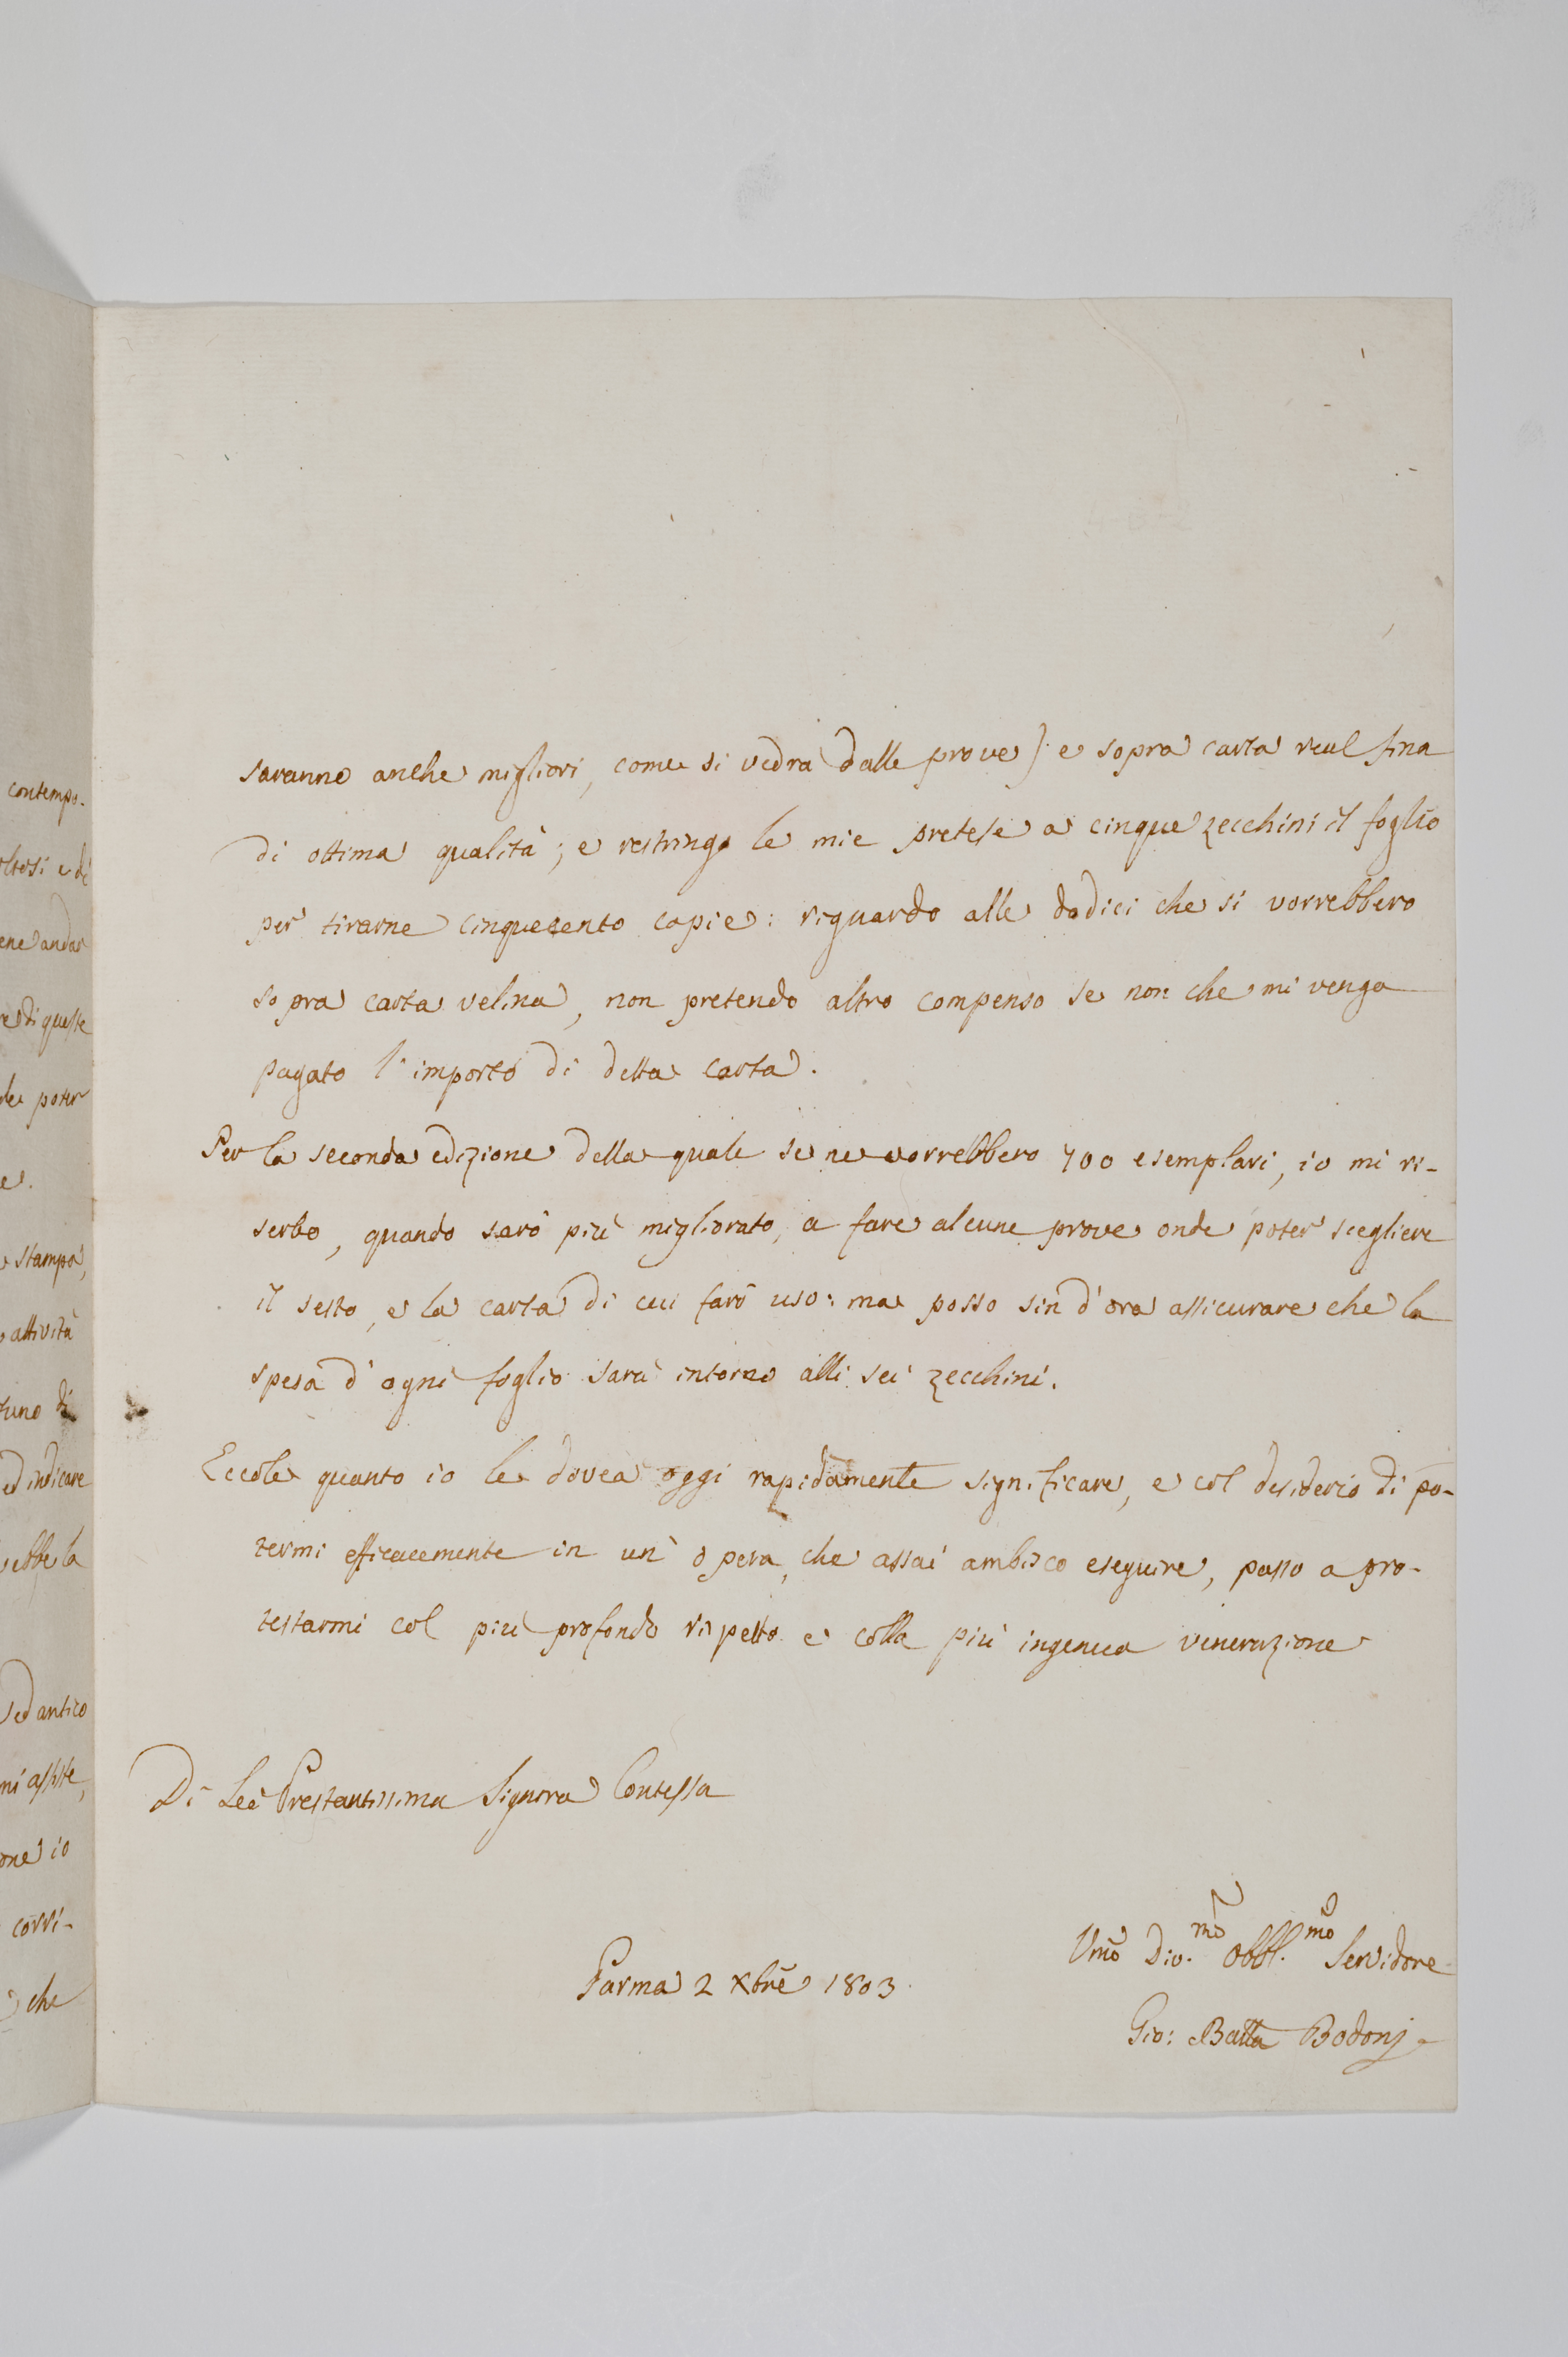 contempo-
oltosi e di
ene andar
re di queste
de poter
e.
e stampa,
attività
tuno di
ed indicare
ebbe la
ed antico
mi assiste,
one io
corri-
che
saranno anche migliori, come si vedrà dalle prove) e sopra carta real fina
di ottima qualità; e restringo le mie pretese a cinque zecchini il foglio
per tirarne cinquecento copie: riguardo alle dodici che si vorrebbero
sopra carta velina, non pretendo altro compenso se non che mi venga
pagato l'importo di detta carta.
Per la seconda edizione della quale se ne vorrebbero 700 esemplari, io mi ri-
serbo, quando sarò più migliorato, a fare alcune prove onde poter scegliere
il sesto, e la carta di cui farò uso: ma posso sin d'ora assicurare che la
spesa d'ogni foglio sarà intorno alli sei zecchini.
Eccole quanto io le dovea oggi rapidamente significare, e col desiderio di po-
termi efficacemente in un' opera, che assai ambisco eseguire, passo a pro-
testarmi col più profondo rispetto e colla più ingenua venerazione
Di Lei Prestantissima Signora Contessa
Umo Div.mo Obbl.mo Servidore
Parma 2 Xbre 1803.
Gio: Batta Bodonj